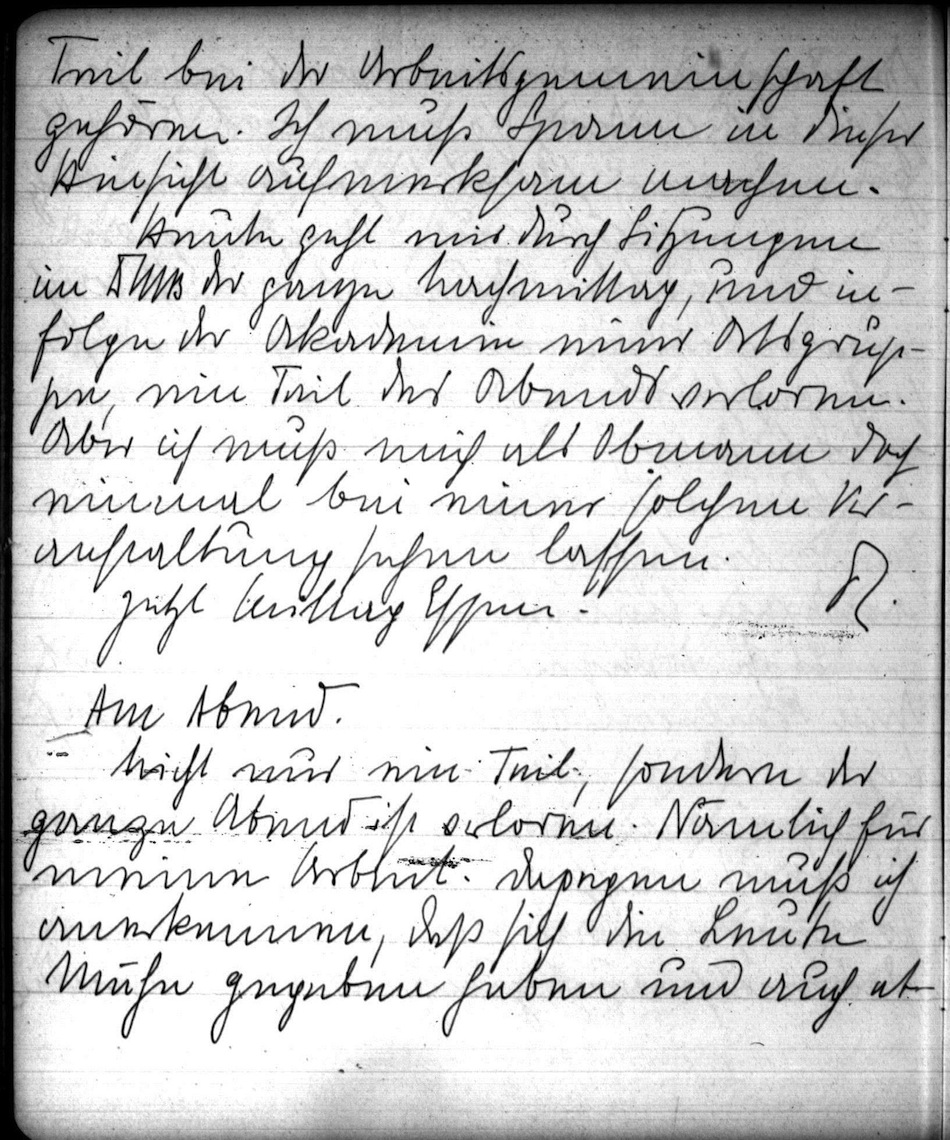 Teil bei der Arbeitsgemeinschaft
gehören. Ich muß Spann in dieser
Hinsicht aufmerksam machen.
Heute geht mir durch Sitzungen
im der ganze Nachmittag, und in-
folge der Akademie einer Ortsgrup-
pe, ein Teil des Abends verloren.
Aber ich muß mich als Obmann doch
einmal bei einer solchen Ver-
anstaltung sehen lassen.
Jetzt Mittag Essen.
Am Abend.
Nicht nur ein Teil, sondern der
ganze Abend ist verloren. Nämlich für
meine Arbeit. Dagegen muß ich
anerkennen, daß sich die Leute
Mühe gegeben haben und auch et-